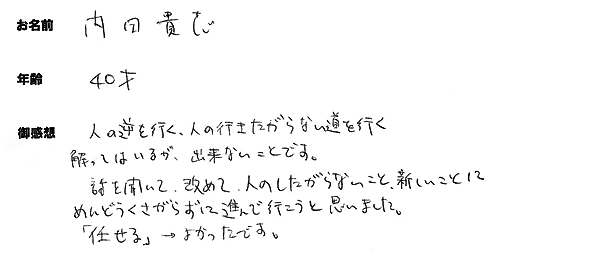 お名前 内田貴志
年齢 40才
御感想 人の逆を行く、人の行きたがらない道を行く
解ってはいるが、出来ないことです。
話を聞いて、改めて、人のしたがらないこと、新しいことに
めんどうくさがらずに進んで行こうと思いました。
「任せる」→よかったです。